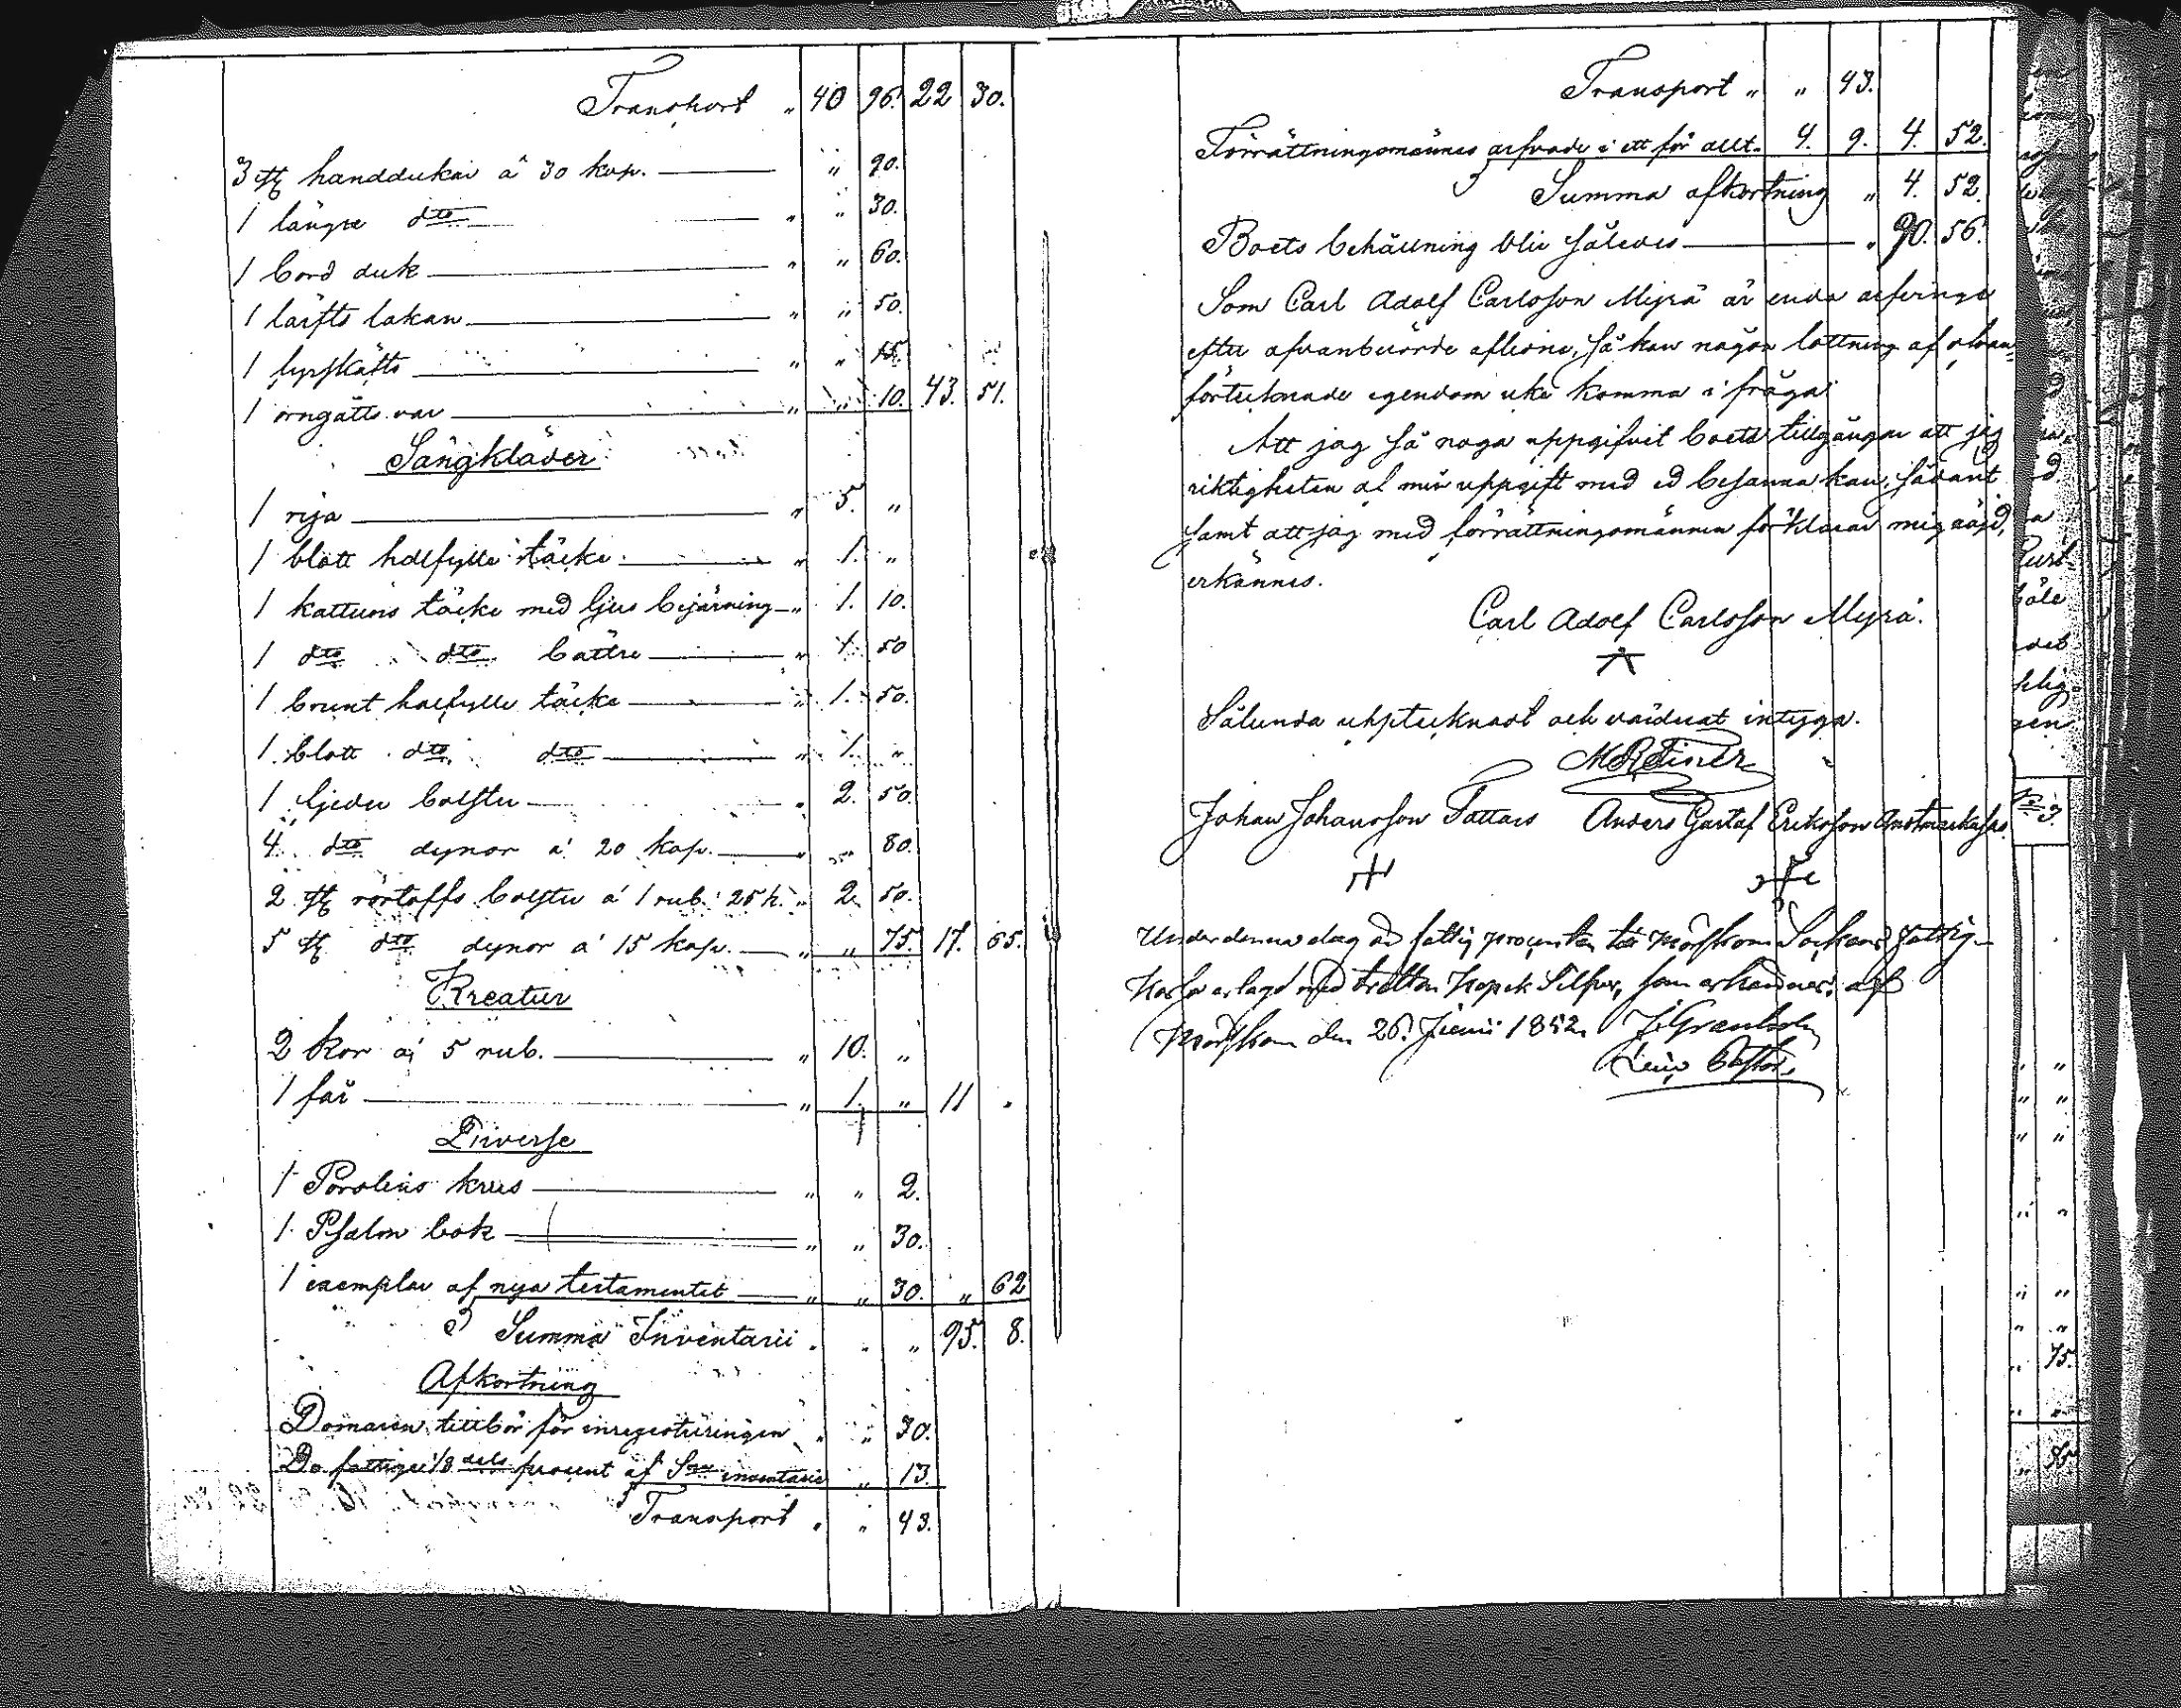 Transport " 40 96. 22 30.
3 st handdukar á 30 kop. " 90.
1 längre dto " " 30.
1 bord duk " " 60.
1 lärfts lakan " " 50.
1 fyrskäfts " " 15.
1 örngåtts var " " 10. 43. 51.
Sängkläder
1 rya " 5. "
1 blott halfylle täcke " 1. "
1 kattuns täcke med ljus bejärning " 1. 10.
1 dto dto bättre " 1. 50
1 brunt halfylle täcke " 1. 50.
1 blott dto dto " 1. "
1 fjeder bolster " 2. 50.
4 dto dynor á 20 kop. " " 80.
2 st rörtoffs bolster á 1 rub. 25 k. " 2. 50.
5 st dto dynor á 15 kop. " " 75. 17. 65.
Kreatur
2 kor á 5 rub. " 10. "
1 får " 1. " 11 "
Diverse
1 Porslins krus " " 2.
1 Psalm bok " " 30.
1 exemplar af nya testamentet " " 30. " 62
Summa Inventarii " " " 95. 8.
Afkortning
Domaren tillbör för inregistreringen " " 30.
De fattige 1/8 dels procent af Smn inventarii " 13.
Transport " " 43.
Transport " " 43.
Förrättningsmännes arfvode i ett för allt. 4. 9. 4. 52.
Summa afkortning " 4. 52.
Boets behållning blir således " 90. 56.
Som Carl Adolf Carlsson Myrå är enda arfvinge
efter afvanberörde aflidne, så kan någon lottning af ofvan
förtecknade egendom icke komma i fråga.
Att jag så noga uppgifvit boets tillgångar att jag
riktigheten af min uppgift med ed besanna kan, sådant
samt att jag med förrättningsmännen förklarar mig nöjd,
erkännes.
Carl Adolf Carlsson Myrå.
Sålunda upptecknadt och värderat intyga.
Johan Johansson Tattars Anders Gustaf Eriksson
Under denna dag äro fattig procenten till Mörskom Sockens fattig-
Kassa erlagd med tretton Kopek Silfver, som erkännes; af
Mörskom den 26. Junii 1852